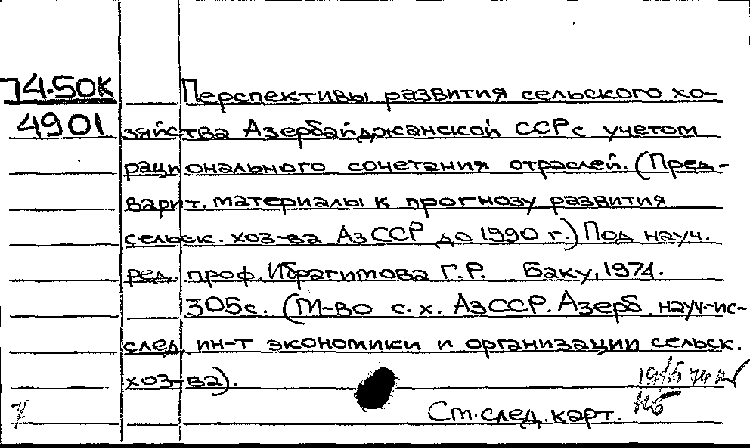 74-50К Перспективы развития сельского хо-
4901 зяйства Азербайджанской ССР с учетом
рационального сочетания отраслей. (Пред-
варит. материалы к прогнозу развития
сельск. хоз-ва АзССР до 1990 г.) Под науч.
ред. проф. Ибрагимова Г.Р. Баку, 1974.
305с. (М-во с.х. АзССР. Азерб. науч-ис-
след. ин-т экономики и организации сельск.
хоз-ва).
См. след. карт.